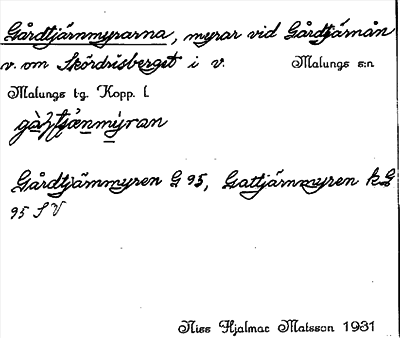 Gårdtjärnmyrarna, myrar vid Gårdtjärnån
v. om Skördrisberget i v. Malungs s:n
Malungs t:g. Kopp. l.
Gårdtjärnmyren G 95, Gattjärnmyren k G
95 S V
Nils Hjalmar Matsson 1931